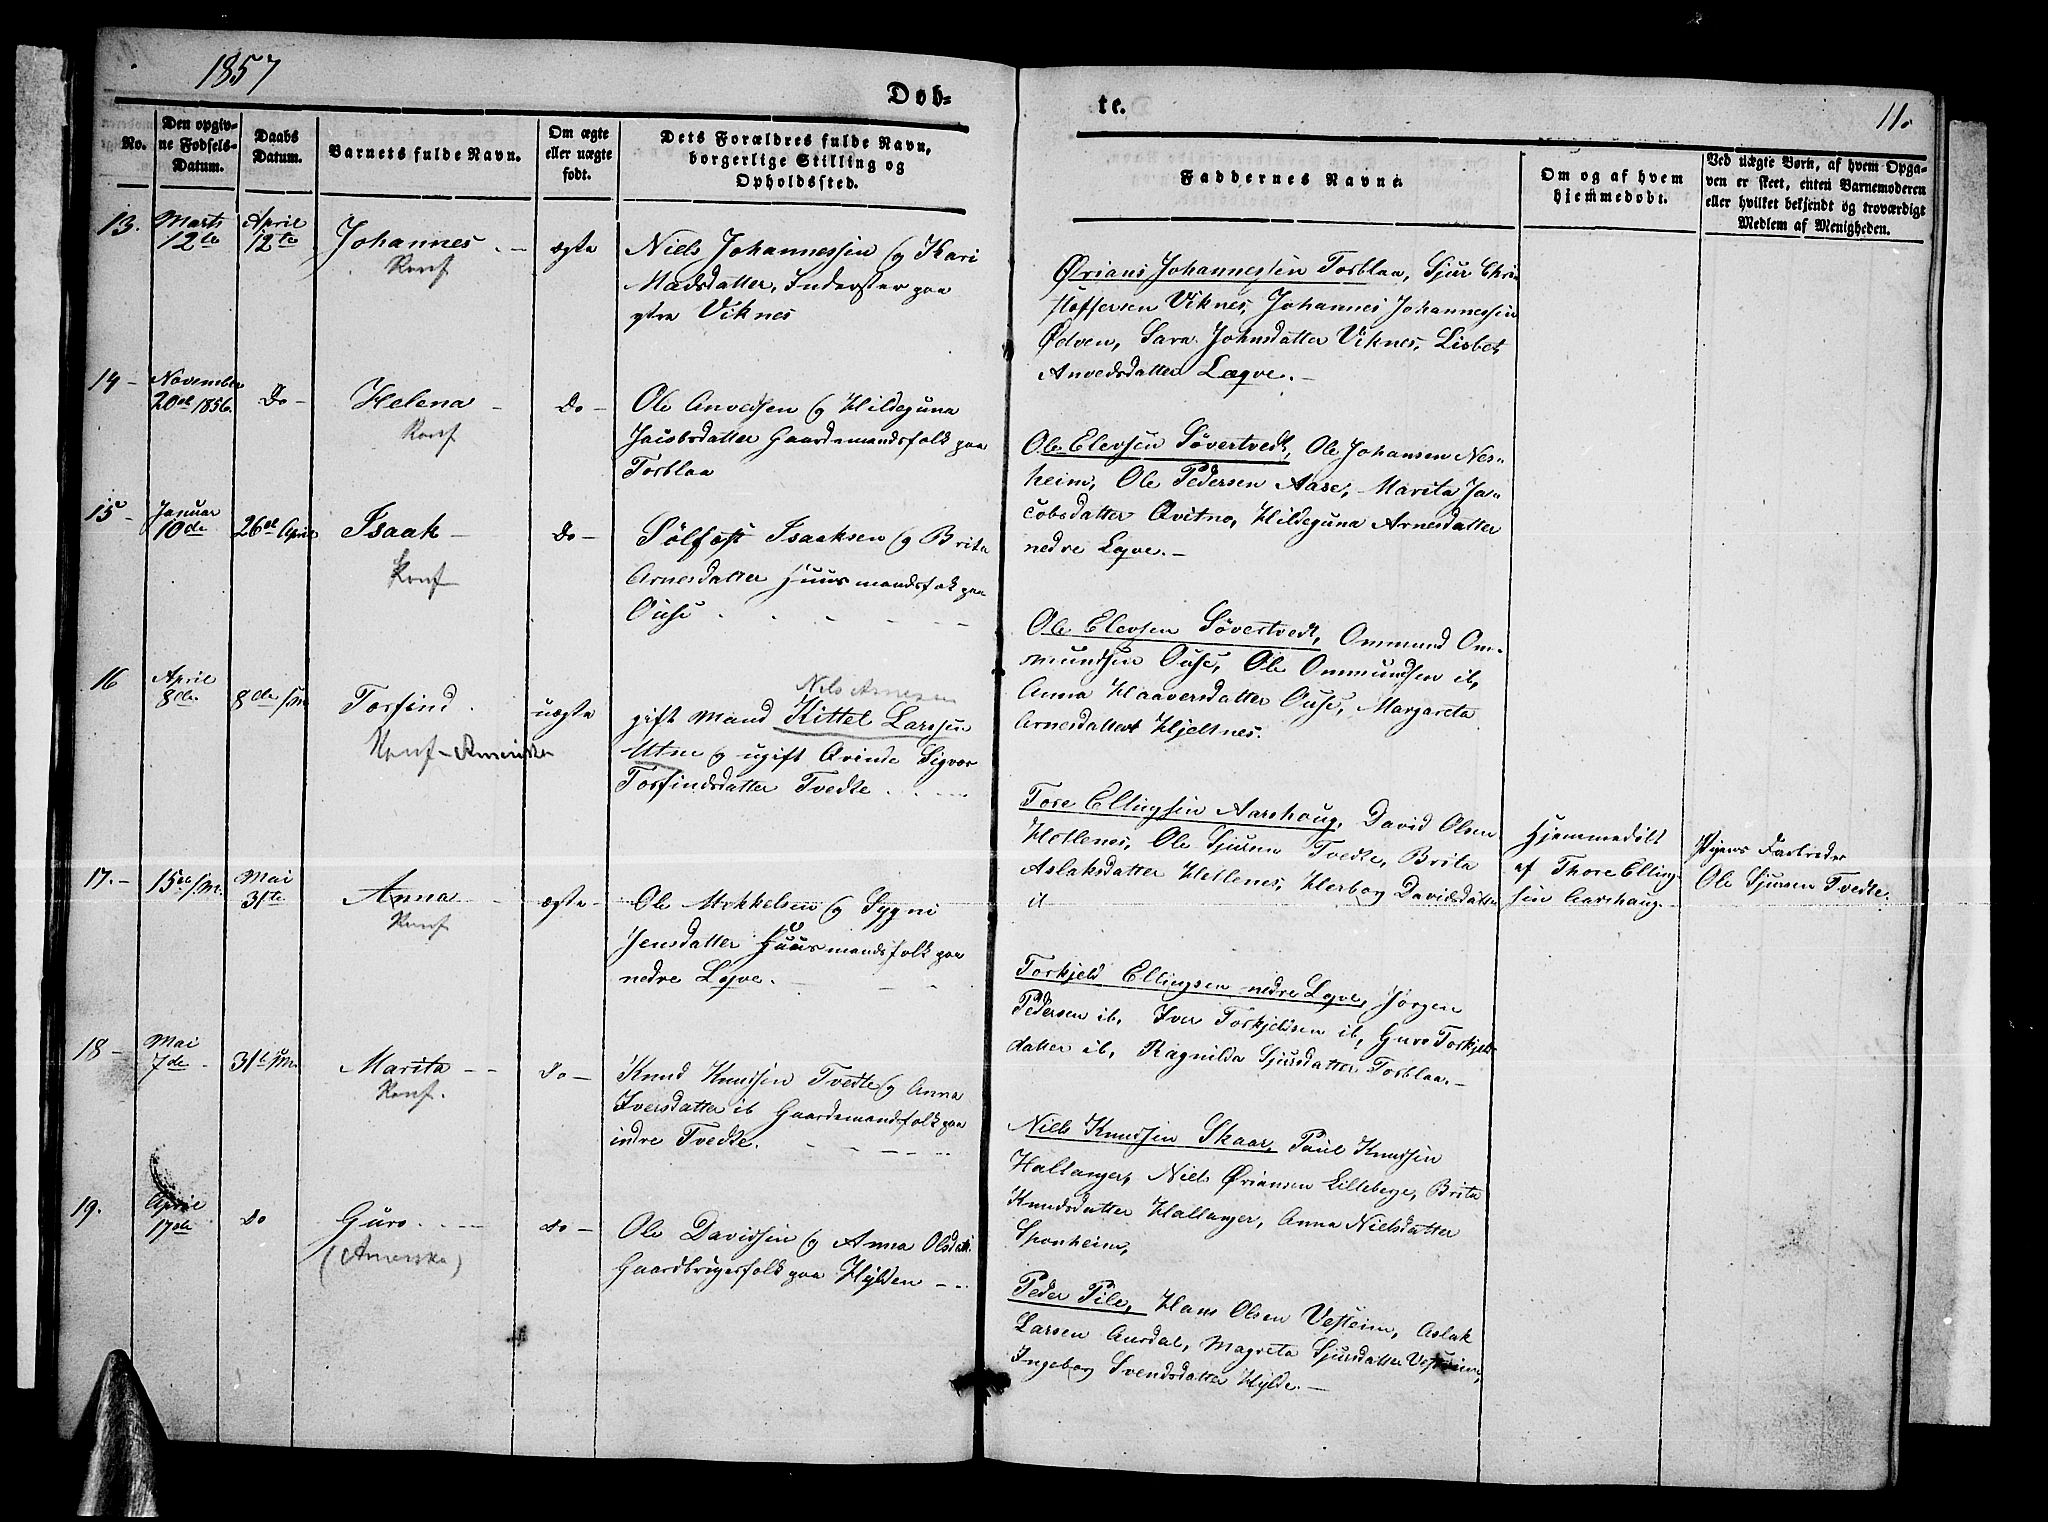 1857
Døb-
No.
Den opgiv-
ne Fødsels-
Datum.
Daabs
Datum.
Barnets fulde Navn.
Om ægte
eller uægte
født.
Dets Forældres fulde Navn,
borgerlige Stilling og
Opholdssted.
13.
Marts
12te
April
12te
Johannes
Konf
ægte
Niels Johannessen og Kari
Madsdatter, Inderster paa
ytre Viknes
14
November
20de 1856.
Do
Helena
Konf
Do
Ole Anvedsen og Hildeguna
Jacobsdatter Gaardemandsfolk paa
Torblaa
15
Januar
10de
26de April
Isaak
Konf
Do
Sølfest Isaaksen og Brita
Arnesdatter Huusmandsfolk paa
Ouse
16
April
8de
8de s/M.
Torfind
Konf - Amerika
uægte
Nils Arnesen
gift Mand Kittel Larssen
Utne og ugift Qvinde Sigvor
Torfindsdatter Tvedte
17.
15de s/M.
Mai
31te
Anna
Konf
ægte
Ole Mikkelsen og Sygni
Jensdatter Huusmandsfolk paa
nedre Leqve.
18
Mai
7de
31te s/M.
Marita
Konf.
Do
Knud Knudsen Tvedte og Anna
Iversdatter ib Gaardemandsfolk paa
indre Tvedte.
19.
April
17de
Do
Guro
(Amerika)
Do
Ole Davidsen og Anna Olsdatt.
Gaardbrugerfolk paa Hylden
te.
11.
Faddernes Navne.
Om og af hvem
hjemmedøbt.
Ved uægte Børn, af hvem Opga-
ven er skeet, enten Barnemoderen
eller hvilket bekjendt og troværdigt
Medlem af Menigheden.
Ørians Johannessen Torblaa, Sjur Chri-
stoffersen Viknes, Johannes Johannessen
Ødven, Sara Johnsdatter Viknes, Lisbet
Anvedsdatter Læqve.
Ole Elevsen Søvertvedt, Ole Johansen Nes-
heim, Ole Pedersen Aase, Marita Ja-
cobsdatter Qvitno, Hildeguna Arnesdatter
nedre Leqve.
Ole Elevsen Søvertvedt, Ommund Om-
mundsen Ouse, Ole Ommundsen ib,
Anna Haaversdatter Ouse, Margareta
Arnesdatter Hjeltnes.
Tore Ellingsen Aarhoug, David Olsen
Hetlenes, Ole Sjursen Tvedte, Brita
Aslaksdatter Hetlenes, Herborg Davidsdatter
ib
Hjemmedøbt
af Thore Elling-
sen Aarhaug.
Pigens Farbroder
Ole Sjursen Tvedte.
Torkjeld Ellingsen nedre Leqve, Jørgen
Pedersen ib, Iver Torkjeldsen ib, Guro Torkjelds-
datter ib, Ragnilda Sjursdatter Torblaa.
Niels Knudsen Skaar, Paul Knudsen
Hallanger, Niels Øriansen Lilleberge, Brita
Knudsdatter Hallanger, Anna Nielsdatter
Sponheim,
Peder Pile, Hans Olsen Vestreim, Aslak
Larsen Aurdal, Magreta Sjursdatter Vestreim,
Ingeborg Svendsdatter Hylde.